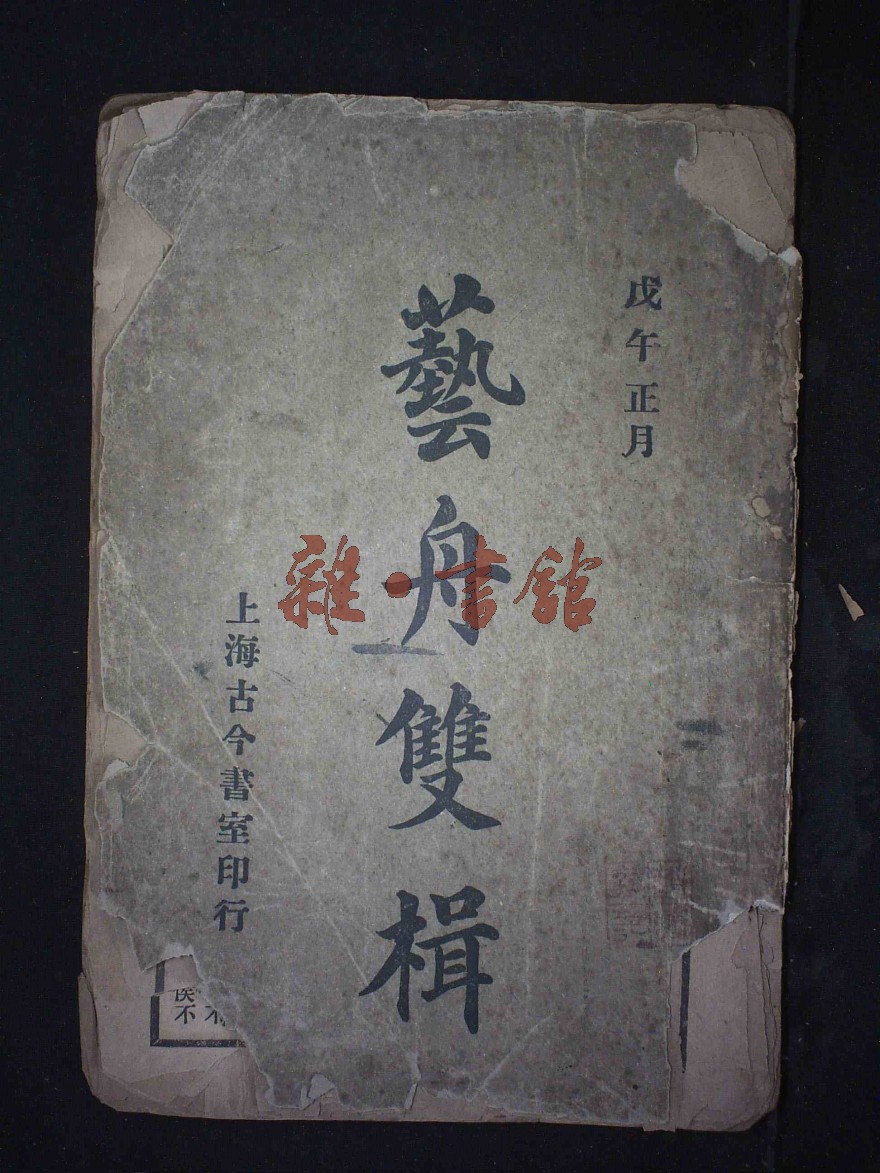 戊午正月
藝舟雙楫
上海古今書室印行
雜·書館
不